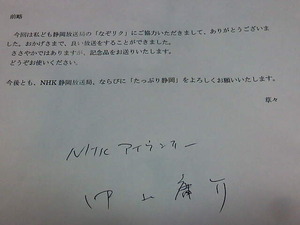 前略
今回は私ども静岡放送局の「なぞリク」にご協力いただきまして、ありがとうございま
した。おかげさまで、良い放送をすることができました。
ささやかではありますが、記念品をお送りいたします。
どうぞお使いください。
今後とも、NHK静岡放送局、ならびに「たっぷり静岡」をよろしくお願いいたします。
草々
NHK アイランナー